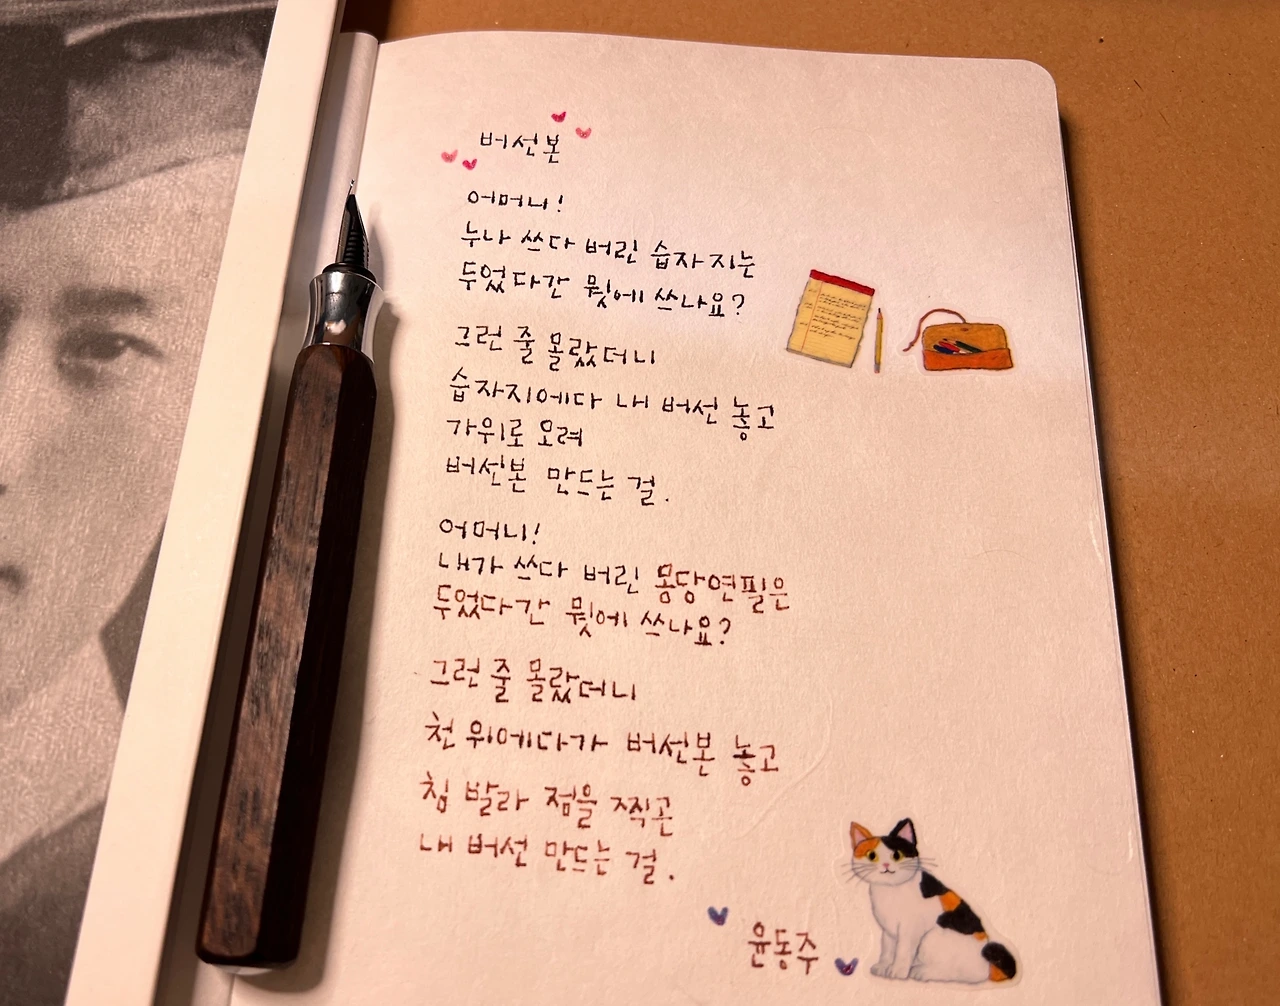 버선본
어머니!
누나 쓰다 버린 습자지는
두었다간 뭣에 쓰나요?
그런 줄 몰랐더니
습자지에다 내 버선 놓고
가위로 오려
버선본 만드는 걸.
어머니!
내가 쓰다 버린 몽당연필은
두었다간 뭣에 쓰나요?
그런 줄 몰랐더니
천 위에다가 버선본 놓고
침 발라 점을 찍곤
내 버선 만드는 걸.
윤동주